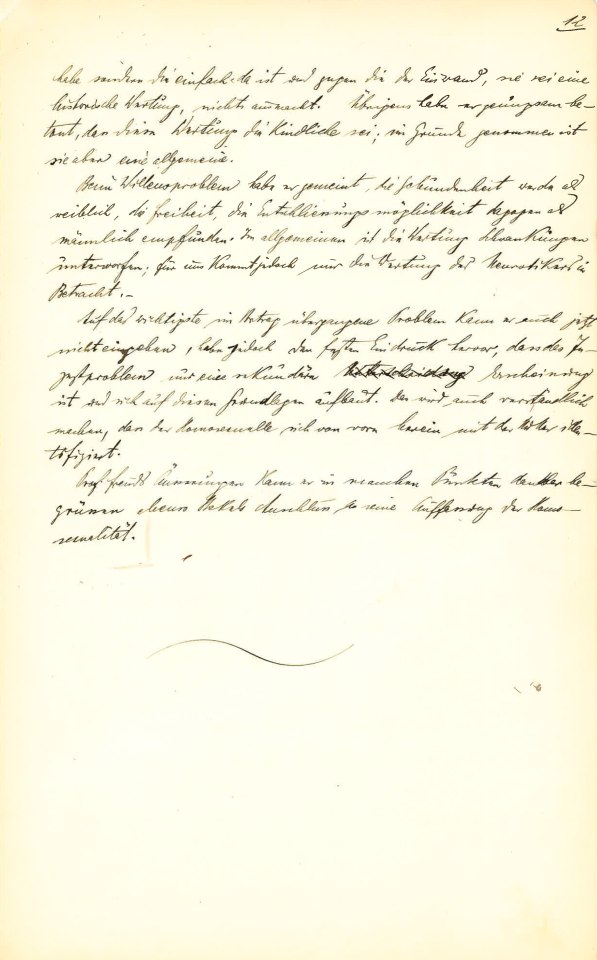 12
habe sondern die einfach da ist und gegen die der Einwand, sie sei eine
historische Wertung, nichts ausmacht. Übrigens habe er genügsam be-
tont, dass diese Wertung die kindliche sei; im Grunde genommen ist
sie aber eine allgemeine.
Beim Willensproblem habe er gemeint, die Gebundenheit werde als
weiblich, die Freiheit, die Entschliessungsmöglichkeit dagegen als
männlich empfunden. Im allgemeinen ist die Wertung Schwankungen
unterworfen; für uns kommt jedoch nur die Wertung des Neurotikers in
Betracht.-
Auf das wichtigste im Vortrag übergangene Problem kann er auch jetzt
nicht eingehen, habe jedoch den festen Eindruck hervor, dass das In-
zestproblem nur eine sekundäre Erscheinung
ist und sich auf diesen Grundlagen aufbaut. Das wird auch verständlich
machen, dass der Homosexuelle sich von vorn herein mit der Mutter iden-
tifiziert.
Prof. Freuds Äusserungen kann er in manchen Punkten dankbar be-
grüssen ebenso Stekels Anschluss an seine Auffassung der Homo-
sexualität.